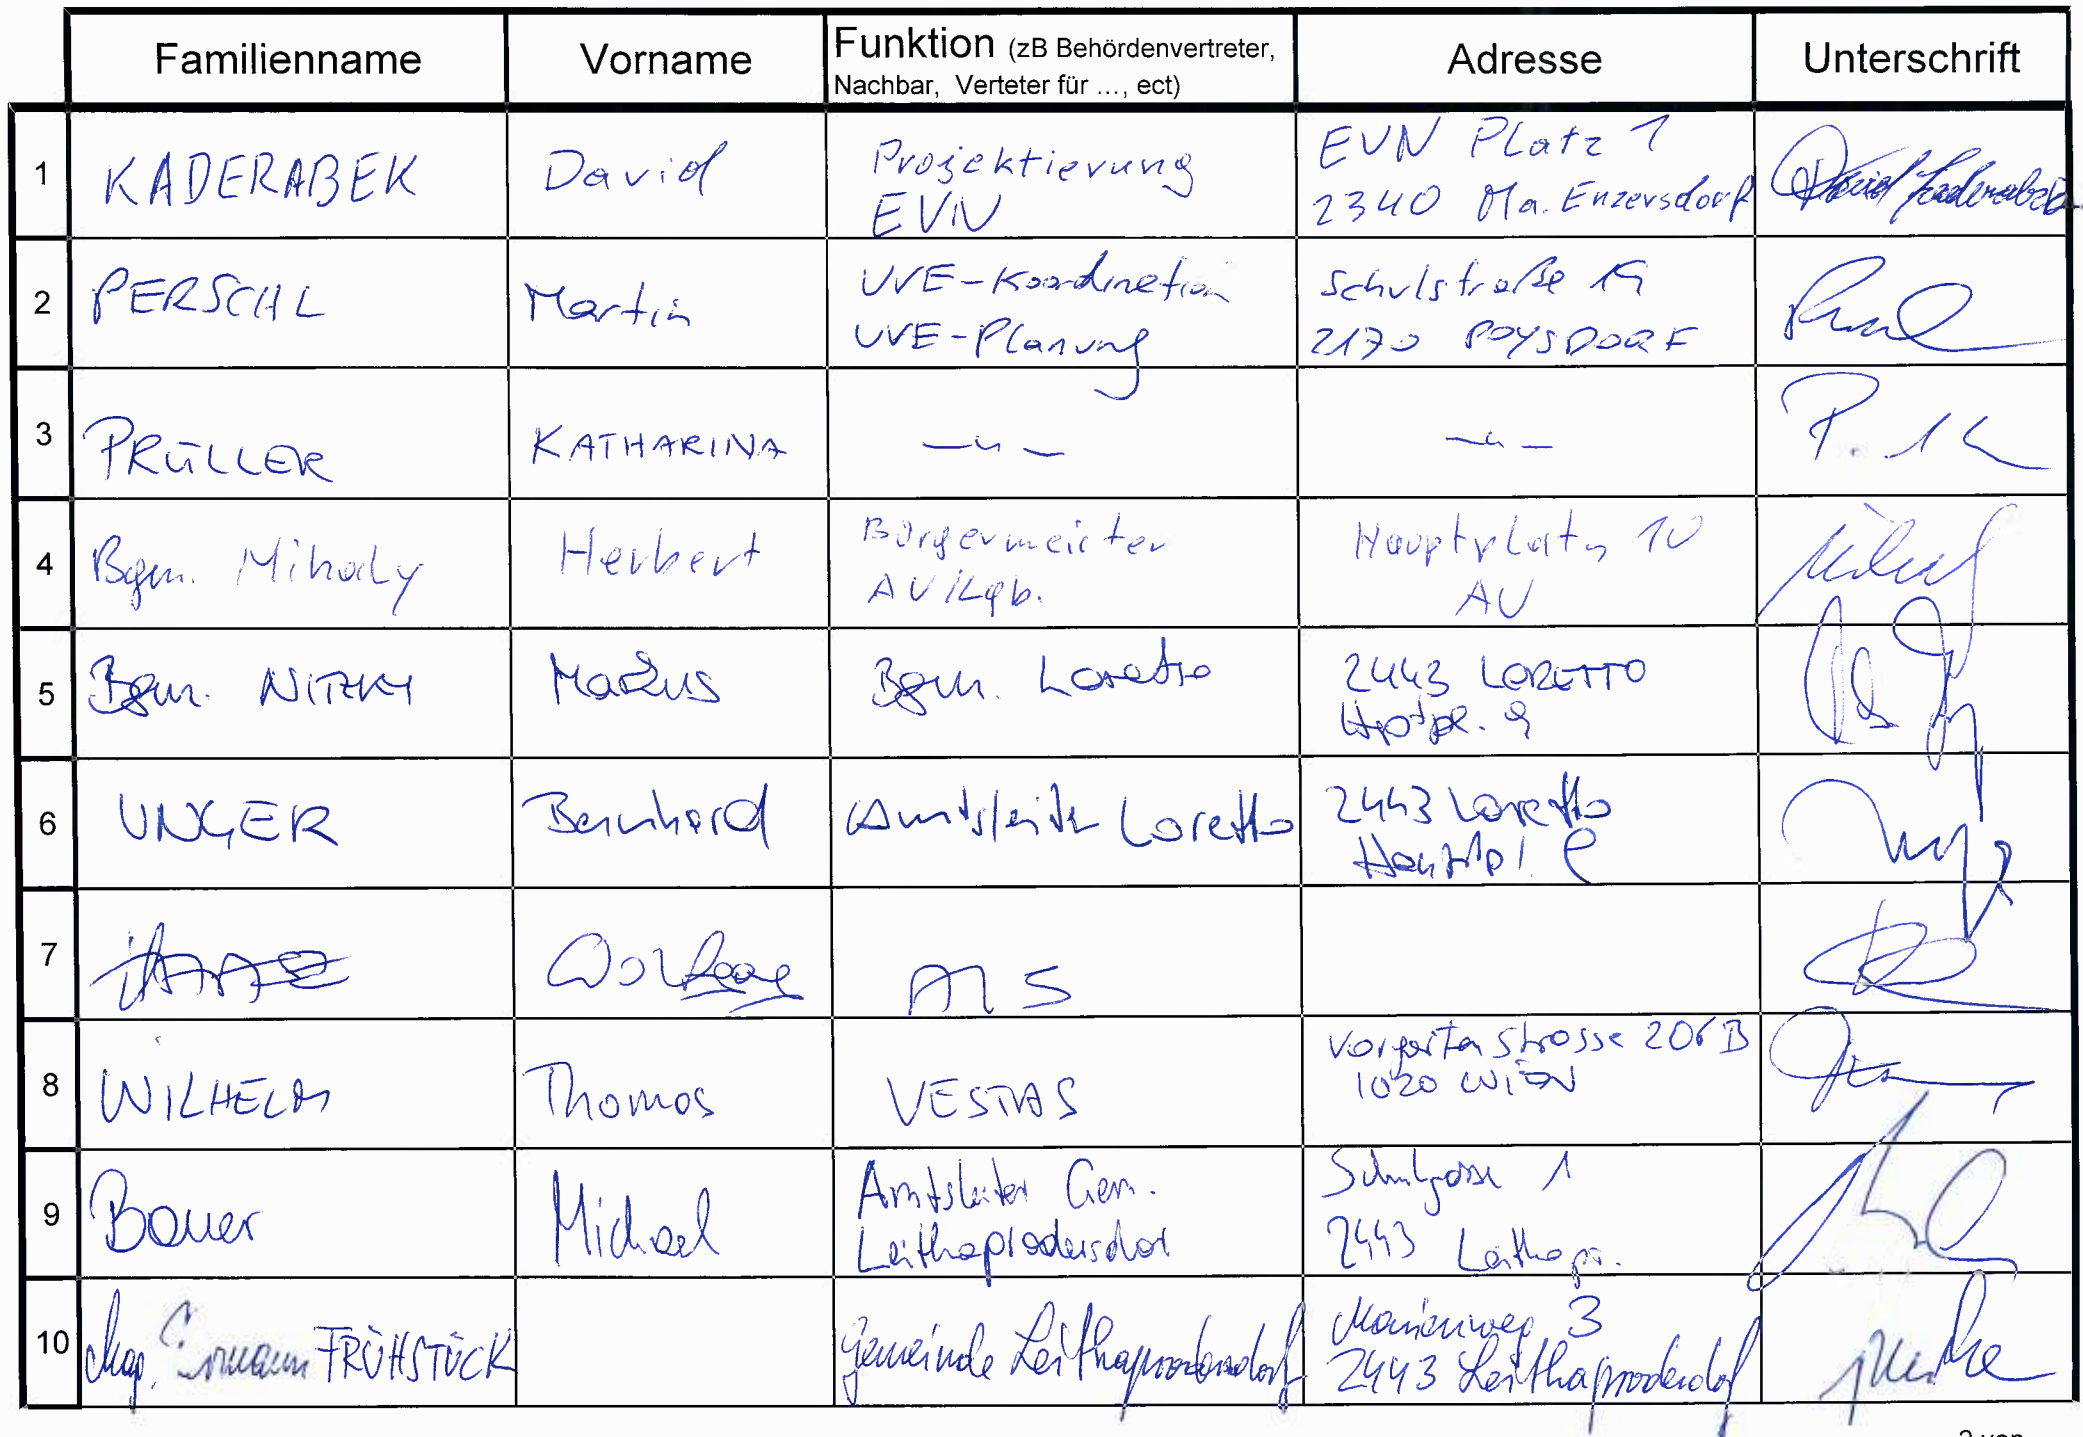 Familienname Vorname Funktion (zB Behördenvertreter, Nachbar, Verteter für ..., ect) Adresse Unterschrift
1 KADERABEK David Projektierung EVN EVN Platz 1 2340 Ma. Enzersdorf David Kaderabek
2 PERSCHL Martin UVE-Koordination UVE-Planung Schulstraße 19 2170 POYSDORF
3 PRÜLLER KATHARINA —"— —"—
4 Bgm. Mihaly Herbert Bürgermeister AU/Lgb. Hauptplatz 10 AU
5 Bgm. NITZKY Markus Bgm. Loretto 2443 LORETTO Hptpl. 9
6 UNGER Bernhard Amtsleiter Loretto 2443 Loretto Hauptpl. 9
7 Wolfgang
8 WILHELM Thomas VESTAS Vorgartenstrasse 206B 1020 WIEN
9 Bauer Michael Amtsleiter Gem. Leithaprodersdorf Schulgasse 1 2443 Leithapr.
10 Mag. FRÜHSTÜCK Gemeinde Leithaprodersdorf Marienweg 3 2443 Leithaprodersdorf